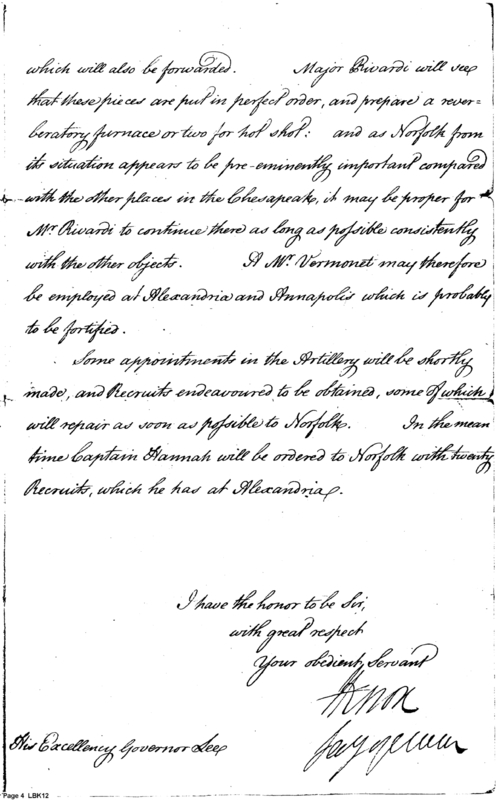 which will also be forwarded. Major Rivardi will see
that these pieces are put in perfect order, and prepare a rever=
beratory furnace or two for hot shot: and as Norfolk from
its situation appears to be pre-eminently important compared
with the other places in the Chesapeak, it may be proper for
Mr. Rivardi to continue there as long as possible consistently
with the other objects. A Mr. Vermonet may therefore
be employed at Alexandria and Annapolis which is probably
to be fortified.
Some appointments in the Artillery will be shortly
made, and Recruits endeavoured to be obtained, some of which
will repair as soon as possible to Norfolk. In the mean
time Captain Hannah will be ordered to Norfolk with twenty
Recruits, which he has at Alexandria.
I have the honor to be Sir,
with great respect
Your obedient Servant
HKnox
Secy of War
His Excellency Governor Lee
Page 4 LBK12